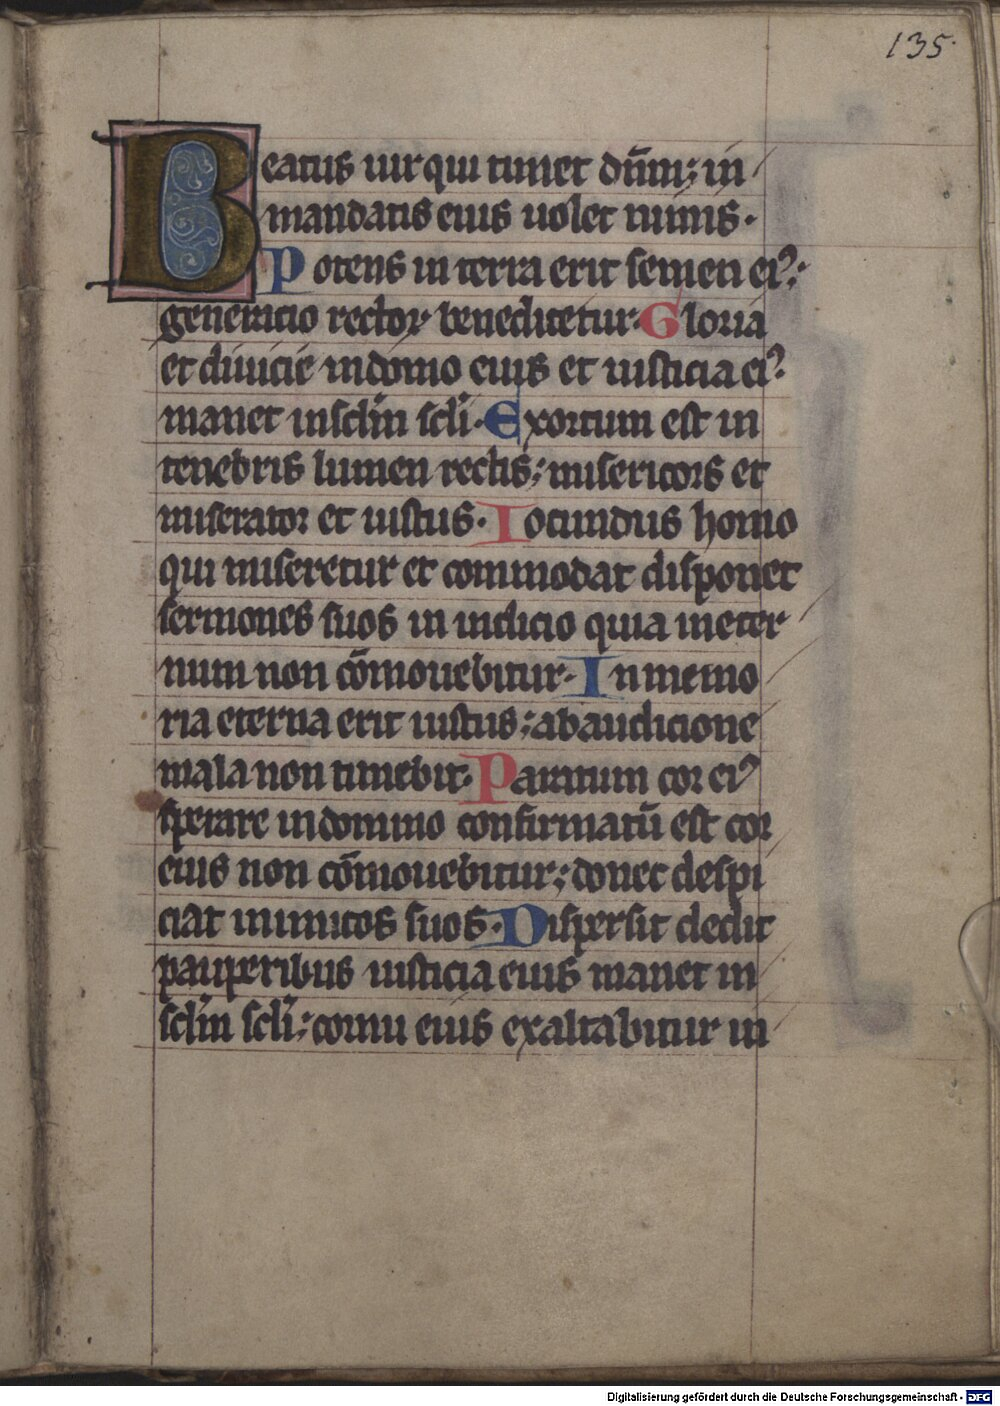 135.
Beatus uir qui timet dn̄m; in
mandatis eius uolet nimis.
Potens in terra erit semen eiꝰ;
generacio rectoꝝ benedicetur. Gloria
et diuicie in domo eius et iusticia eiꝰ
manet in sclm̄ scli̅. Exortum est in
tenebris lumen rectis; misericors et
miserator et iustus. Iocundus homo
qui miseretur et commodat disponet
sermones suos in iudicio quia in eter
num non cōmouebitur. In memo
ria eterna erit iustus; ab audicione
mala non timebit. Paratum cor eiꝰ
sperare in domino confirmatū est cor
eius non cōmouebitur; donec despi
ciat inimicos suos. Dispersit dedit
pauperibus iusticia eius manet in
sclm̄ scli̅; cornu eius exaltabitur in
Digitalisierung gefördert durch die Deutsche Forschungsgemeinschaft - DFG